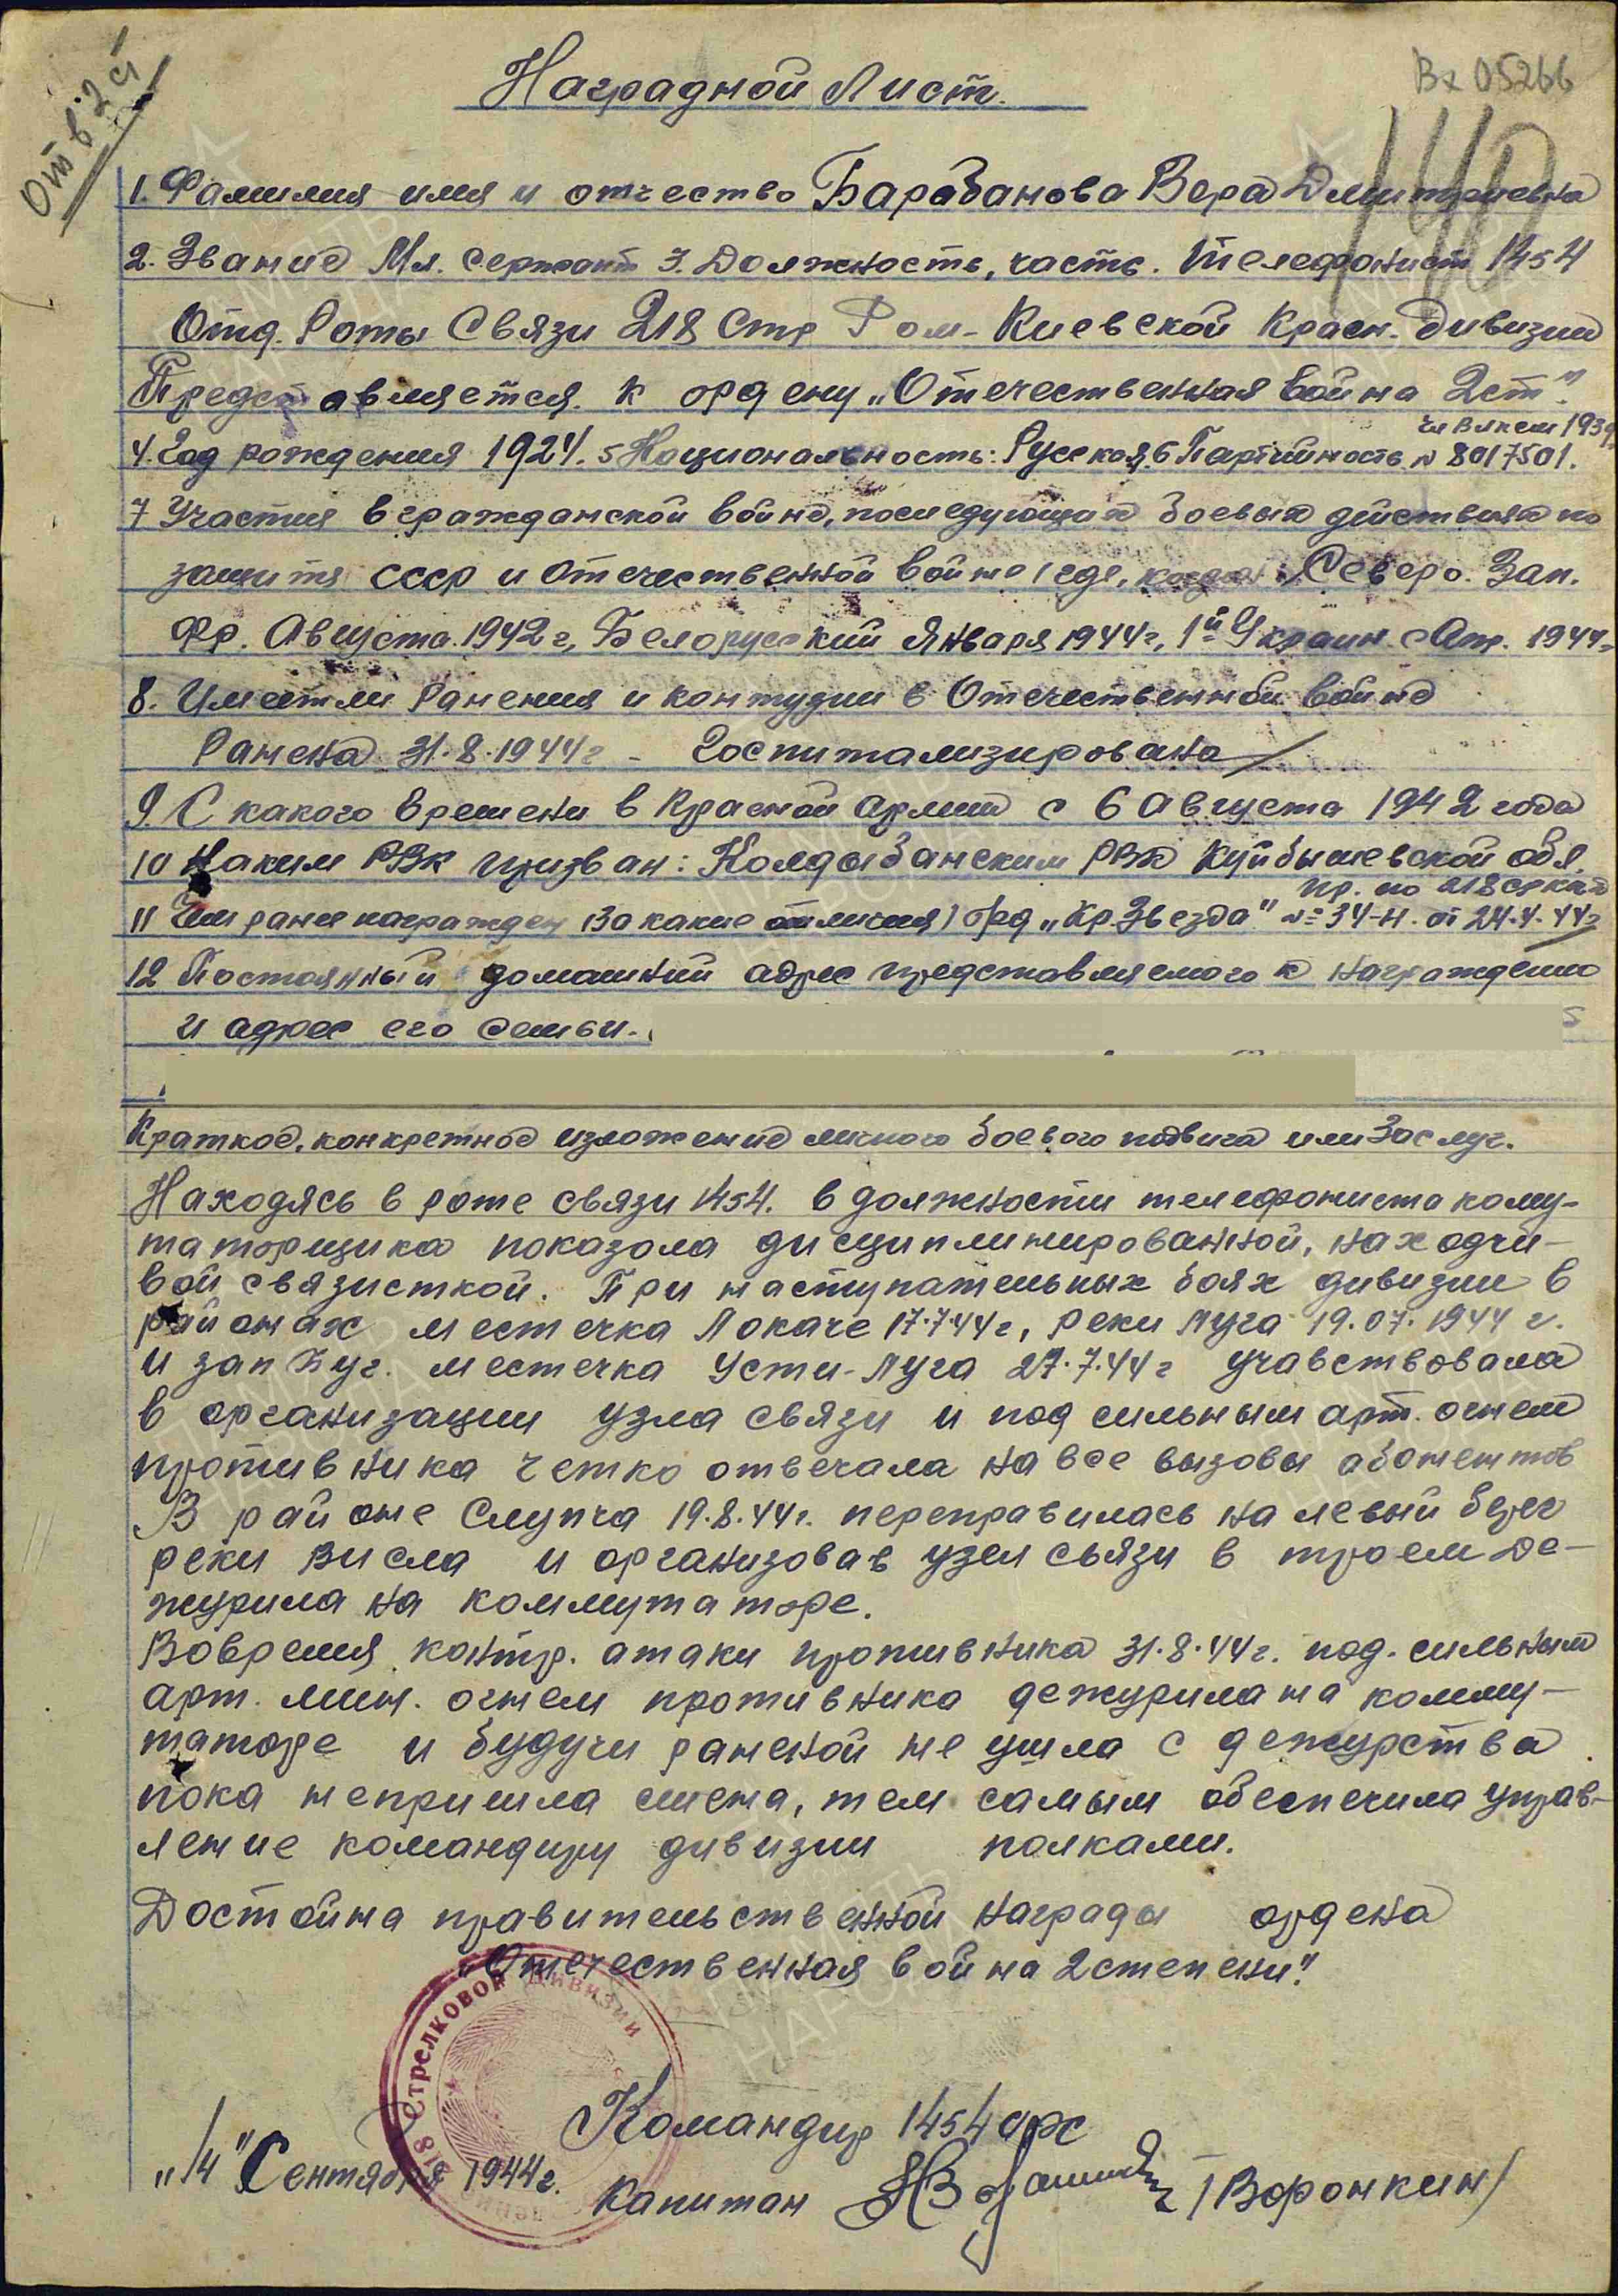 Отв. 2 ст
Вх 05266
Наградной Лист.
1. Фамилия имя и отчество Барабанова Вера Дмитриевна
2. Звание Мл. сержант 3. Должность, часть. Телефонист 1454
Отд. Роты Связи 218 Стр Ром-Киевской Красн. дивизии
Представляется к ордену „Отечественная война 2 ст."
чл ВЛКСМ 1939
4. Год рождения 1924. 5 Национальность: Русская 6 Партийность № 8017501.
7 Участия в гражданской войне, последующих боевых действиях по
защите СССР и отечественной войне (где, когда) Северо. Зап.
Фр. Августа 1942 г, Белорусский Января 1944 г, 1й Украин с Апр. 1944г
8. Имеет ли ранения и контузии в Отечественной войне
Ранена 31.8.1944 г - Госпитализирована
9. С какого времени в Красной армии с 6 Августа 1942 года
10 Каким РВК призван: Колдыбанским РВК Куйбышевской обл.
пр. по 218 срккд
11 Чем ранее награжден (За какие отличия) орд „Кр. Звезда" № 34-н. от 24.4.44 г
12 Постоянный домашний адрес представляемого к награждению
и адрес его семьи.
Краткое, конкретное изложение личного боевого подвига или Заслуг.
Находясь в роте связи 1454. в должности телефониста кому-
таторщика показала дисциплинированной, находчи-
вой связисткой. При наступательных боях дивизии в
районах местечка Локаче 17.7.44 г, реки Луга 19.07.1944 г.
и зап Буг. местечка Усти-Луга 27.7.44 г учавствовала
в организации узла связи и под сильным арт. огнем
противника четко отвечала на все вызовы абонентов
В районе Слупча 19.8.44 г. переправилась на левый берег
реки Висла и организовав узел связи в троем де-
журила на коммутаторе.
Вовремя контр. атаки противника 31.8.44 г. под. сильным
арт. мин. огнем противника дежурила на комму-
таторе и будучи раненой не ушла с дежурства
пока непришла смена, тем самым обеспечила управ-
ление командиру дивизии полками.
Достойна правительственной награды ордена
„Отечественная война 2 степени".
218 Стрелковой Дивизии
Командир 1454 орс
„14" Сентября 1944 г. Капитан /Воронкин/